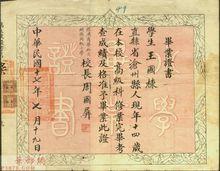 畢業證書
學生王國棟
直隸省滄州縣人現年十四歲
在本校高級科修業完畢考
查成績及格准予畢業此證
校長周國屏
中華民國十七年七月十九日
證書
學